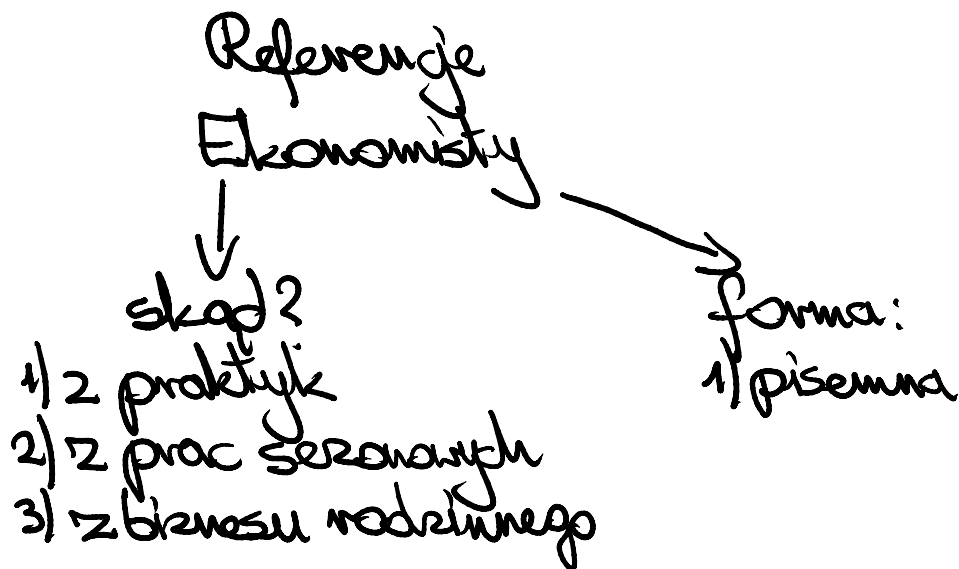 Referencje
Ekonomisty
skąd?
1) z praktyk
2) z prac sezonowych
3) z biznesu rodzinnego
forma:
1) pisemna